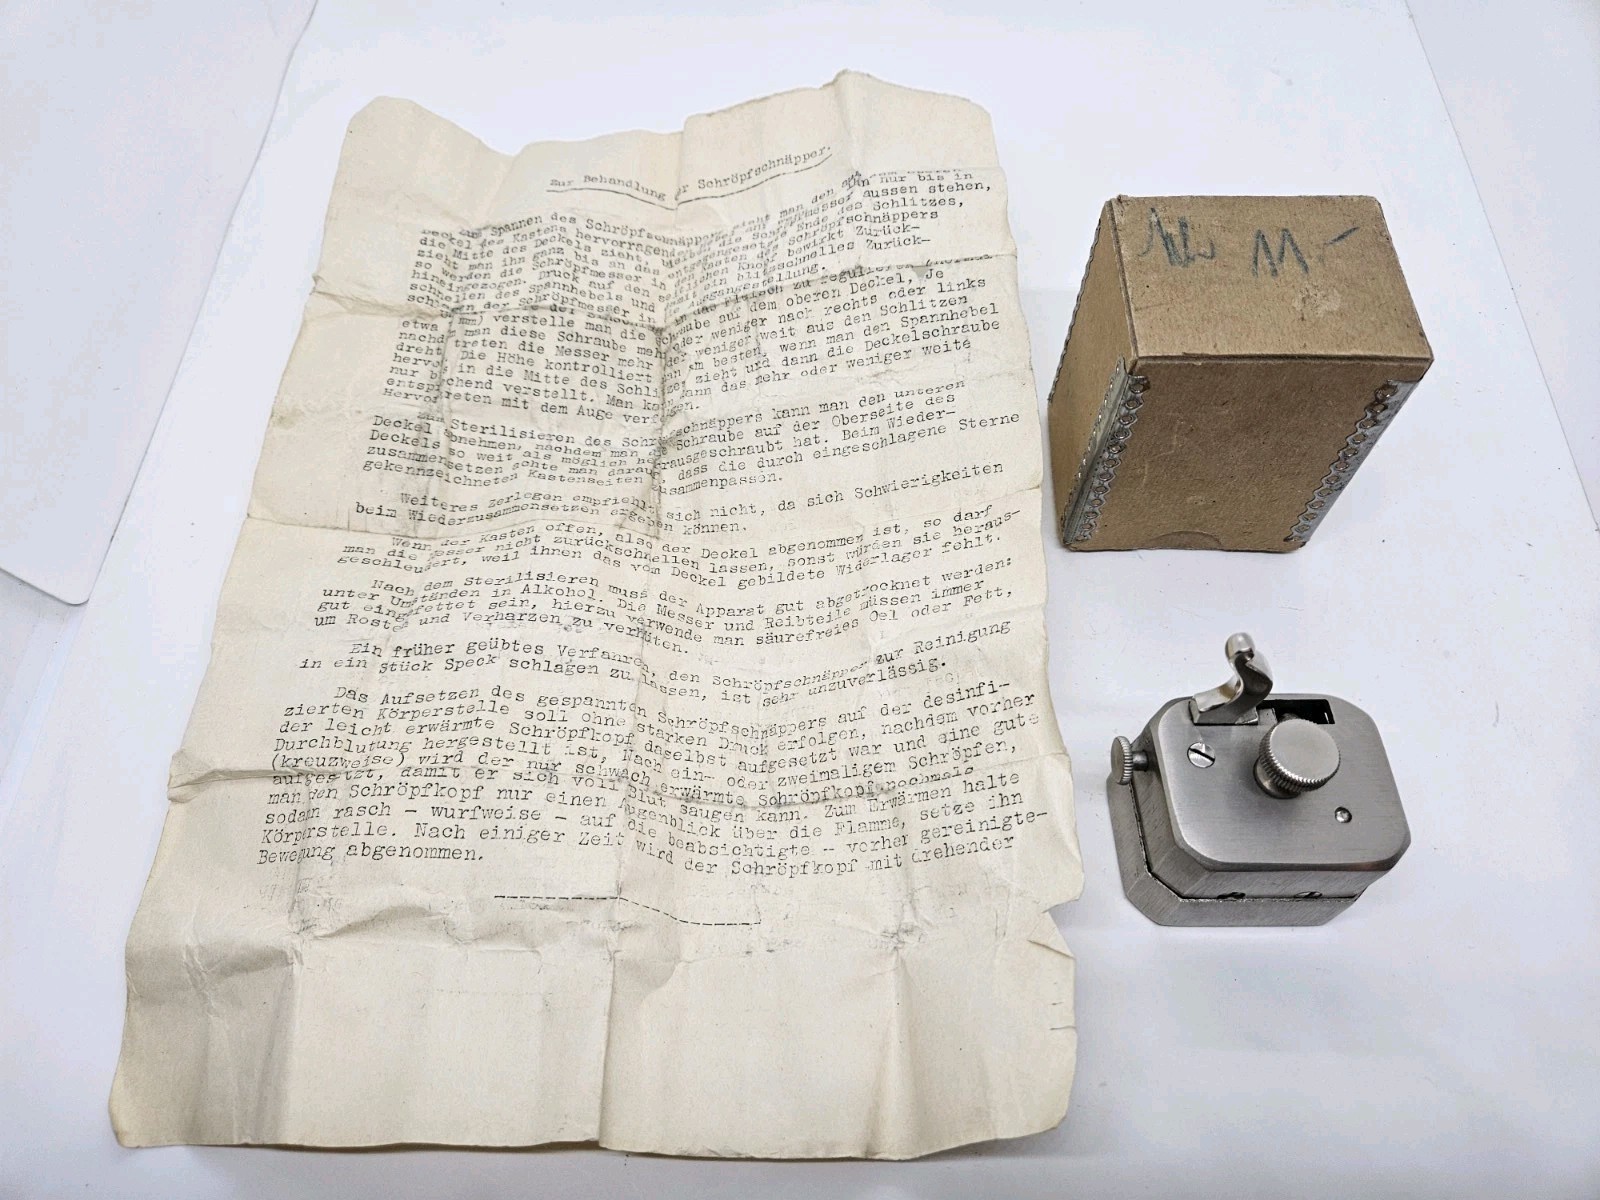 Zur Behandlung der Schröpfschnäpper.
Zum Spannen des Schröpfschnäppers zieht man den aus dem
Deckel des Kastens hervorragenden
die Mitte des Deckels zieht, bleiben die Schröpfmesser aussen stehen,
zieht man ihn ganz bis an das entgegengesetzte Ende des Schlitzes,
so werden die Schröpfmesser in den Kasten des Schröpfschnäppers
hineingezogen. Druck auf den seitlichen Knopf bewirkt Zurück-
schnellen des Spannhebels und damit ein blitzschnelles Zurück-
der Schröpfmesser in Ausgangsstellung.
in das Fleisch zu regulieren
etwa mm) verstelle man die Schraube auf dem oberen Deckel, Je
nachdem man diese Schraube mehr oder weniger nach rechts oder links
dreht, treten die Messer mehr oder weniger weit aus den Schlitzen
hervor. Die Höhe kontrolliert man am besten, wenn man den Spannhebel
nur bis in die Mitte des Schlitzes zieht und dann die Deckelschraube
entsprechend verstellt. Man kann dann das mehr oder weniger weite
Hervortreten mit dem Auge verfolgen.
Zum Sterilisieren des Schröpfschnäppers kann man den unteren
Deckel abnehmen, nachdem man die Schraube auf der Oberseite des
Deckels so weit als möglich herausgeschraubt hat. Beim Wieder-
zusammensetzen achte man darauf, dass die durch eingeschlagene Sterne
gekennzeichneten Kastenseiten zusammenpassen.
Weiteres Zerlegen empfiehlt sich nicht, da sich Schwierigkeiten
beim Wiederzusammensetzen ergeben können.
Wenn der Kasten offen, also der Deckel abgenommen ist, so darf
man die Messer nicht zurückschnellen lassen, sonst würden sie heraus-
geschleudert, weil ihnen das vom Deckel gebildete Widerlager fehlt.
Nach dem Sterilisieren muss der Apparat gut abgetrocknet werden:
unter Umständen in Alkohol. Die Messer und Reibteile müssen immer
gut eingefettet sein, hierzu verwende man säurefreies Oel oder Fett,
um Rosten und Verharzen zu verhüten.
Ein früher geübtes Verfahren, den Schröpfschnäpper zur Reinigung
in ein Stück Speck schlagen zu lassen, ist sehr unzuverlässig.
Das Aufsetzen des gespannten Schröpfschnäppers auf der desinfi-
zierten Körperstelle soll ohne starken Druck erfolgen, nachdem vorher
der leicht erwärmte Schröpfkopf daselbst aufgesetzt war und eine gute
Durchblutung hergestellt ist, Nach ein- oder zweimaligem Schröpfen,
(kreuzweise) wird der nur schwach erwärmte Schröpfkopf nochmals
aufgesetzt, damit er sich voll Blut saugen kann. Zum Erwärmen halte
man den Schröpfkopf nur einen Augenblick über die Flamme, setze ihn
sodann rasch - wurfweise - auf die beabsichtigte - vorher gereinigte-
Körperstelle. Nach einiger Zeit wird der Schröpfkopf mit drehender
Bewegung abgenommen.